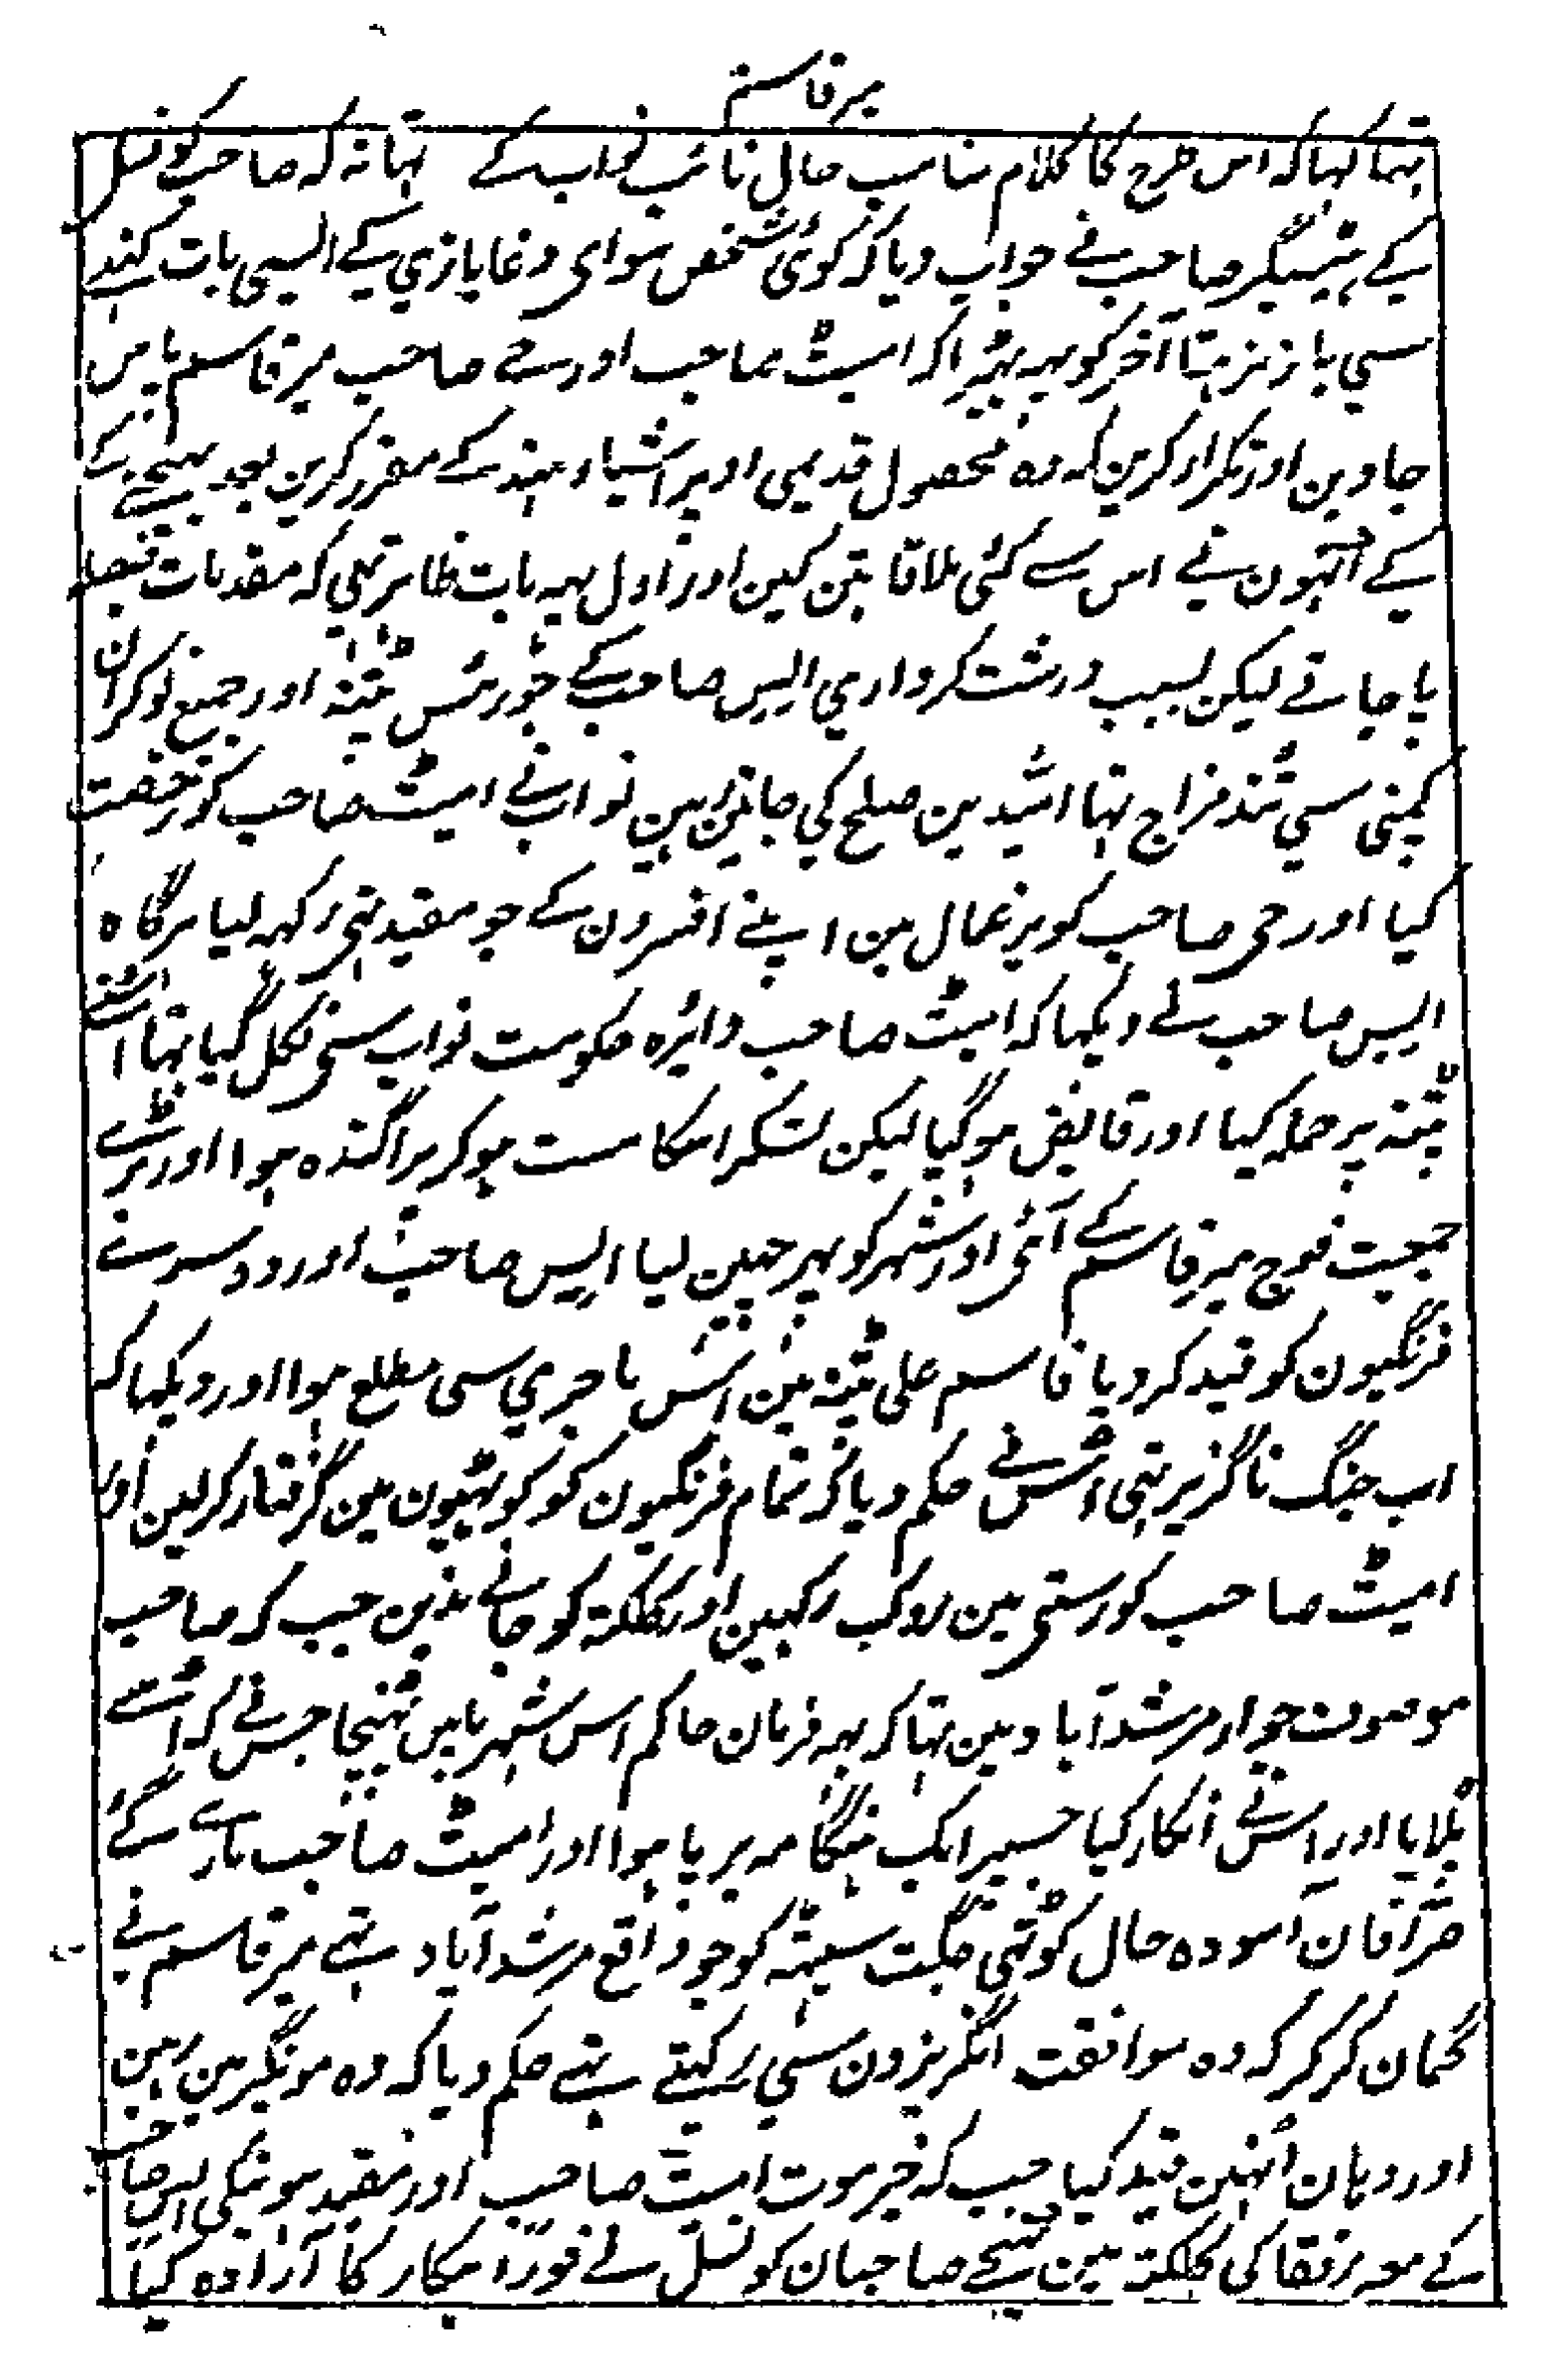 میر قاسم
تہا کہا کہ اس طرح کا کلام مناسب حال نائب نواب کے نہتا نہ کہ صاحب کونسل
کے ہیسٹنگر صاحب نے جواب دیا کہ کوئی شخص سوای دغا بازی کے ایسی بات کہنے
سی باز نرہتا آخر کو یہہ ٹہیرا کہ امیٹ صاحب اور ہے صاحب میر قاسم پاس
جاوین اور تکرار کرین کہ وہ محصول قدیمی اوپر اشیاء ہند کے مقرر کرین بعد پہنچنے کے
کے انہون نے اس سے کئی ملاقاتین کین اور اول یہہ بات ظاہر تہی کہ مقدمات فیصلہ
پا جاتے لیکن بسبب درشت کرداری الیس صاحب کے جو رئیس پٹنہ اور جمیع نوکران
کمپنی سی تند مزاج تہا امیدین صلح کی جاتین رہین نواب نے امیٹ صاحب کو رخصت
کیا اور حی صاحب کو یرغمال مین اپنے افسرون کے جو مقید تہی رکہہ لیا ہرگاہ
الیس صاحب نے دیکہا کہ امیٹ صاحب دائرہ حکومت نواب سی نکل گیا تہا اسنے
پٹنہ پر حملہ کیا اور قابض ہوگیا لیکن لشکر اسکا مست ہوکر پراگندہ ہوا اور بڑے
جمعیت فوج میر قاسم کے آئی اور شہر کو پہر چہین لیا الیس صاحب اور دوسرے
فرنگیون کو قید کر دیا قاسم علی پٹنہ مین اس ماجری سی مطلع ہوا اور دیکہا کہ
اب جنگ ناگزیر تہی اسنے حکم دیا کہ تمام فرنگیون کو کوٹہیون مین گرفتار کرلین اور
امیٹ صاحب کو رستی مین روک رکہین اور کلکتہ کو جانے ندین جب کہ صاحب
موصوف جوار مرشدآباد مین تہا کہ یہہ فرمان حاکم اس شہر پاس پہنچا جس نے کہ اسے
بلایا اور اس نے انکار کیا جسپر ایک ہنگامہ برپا ہوا اور امیٹ صاحب مارے گئے
صرافان آسودہ حال کوٹہی جگت سیٹہہ کو جو واقع مرشدآباد تہے میر قاسم نے
گمان کر کر کہ وہ موافقت انگریزون سی رکہتے تہے حکم دیا کہ وہ مونگیر مین رہین
اور وہان انہین قید کیا جب کہ خبر موت امیٹ صاحب اور مقید ہونیکی الیس صاحب
کے معہ رفقا کی کلکتہ مین پہنچے صاحبان کونسل نے فوراً پیکار کا آرادہ کیا